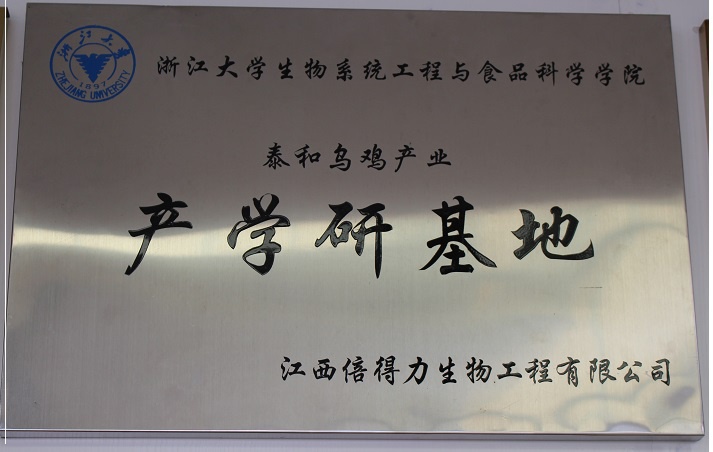 浙江大学
1897
ZHEJIANG UNIVERSITY
浙江大学生物系统工程与食品科学学院
泰和乌鸡产业
产学研基地
江西倍得力生物工程有限公司